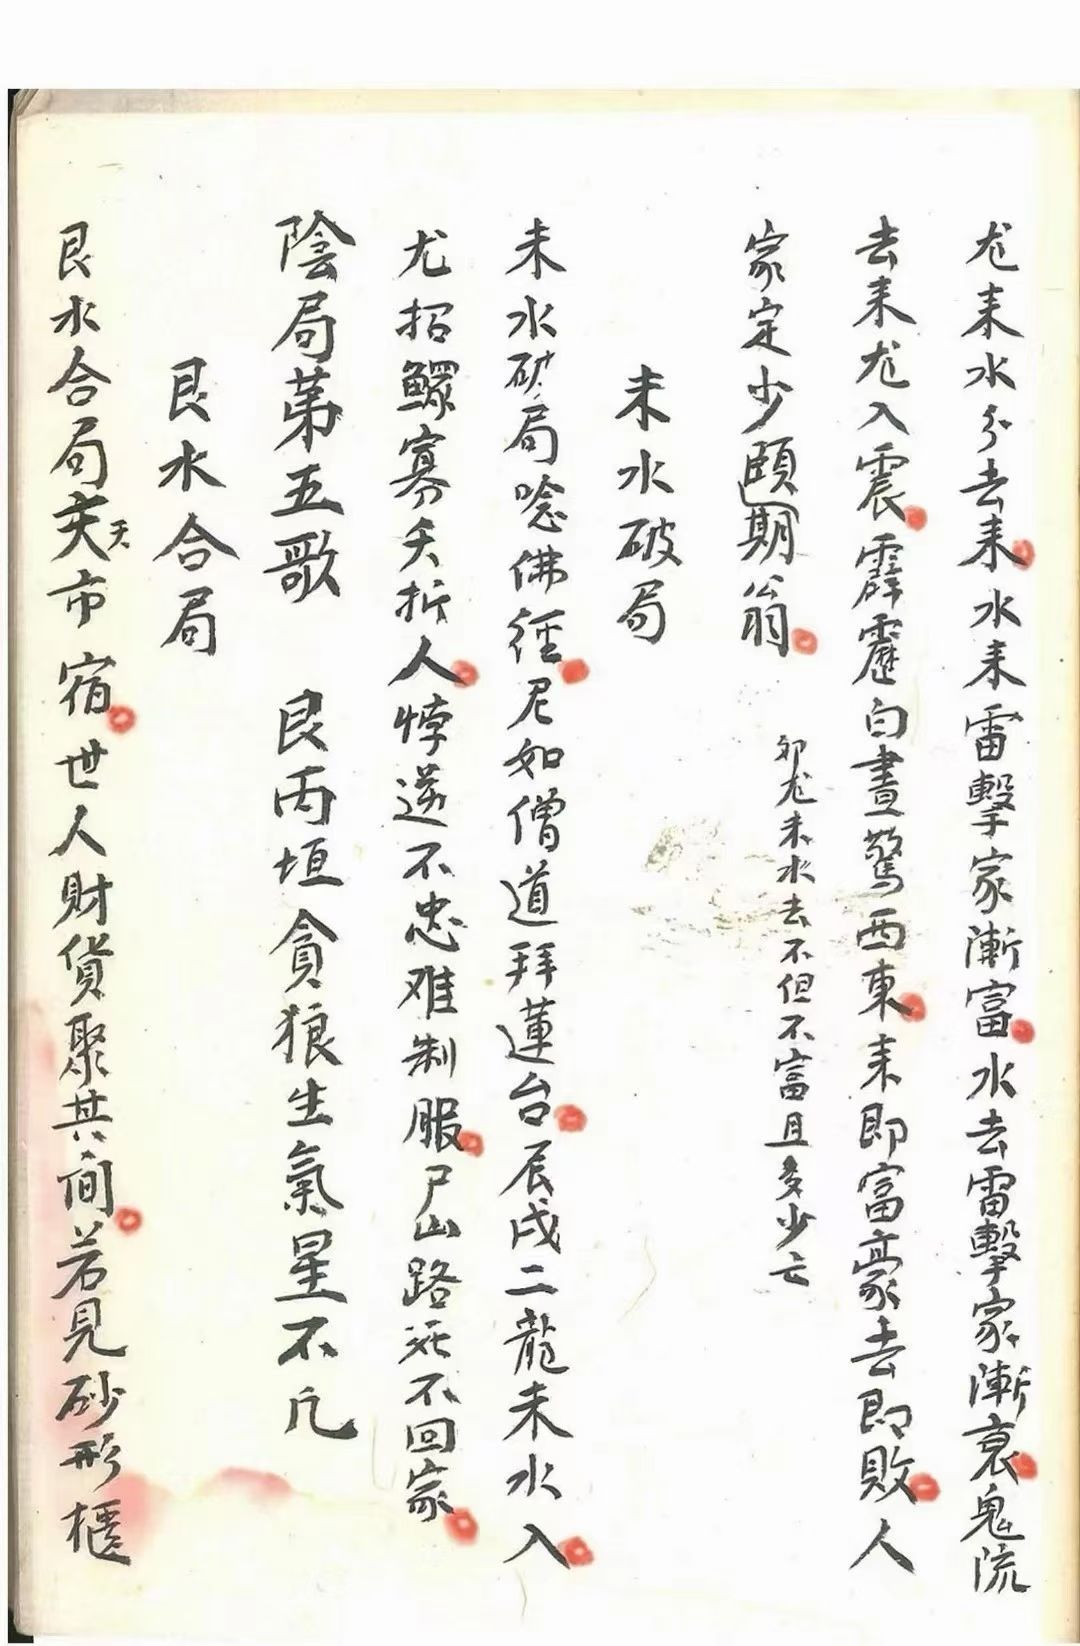 尨耒水分去耒水耒雷擊家漸富水去雷擊家漸衰鬼流
去耒尨入震霹靂白晝驚西東耒即富豪去即敗人
家定少頤期翁
卯尨未水去不但不富且多少亡
未水破局
未水破局唸佛徑尼如僧道拜蓮台辰戍二龍未水入
尤招鰥寡夭折人悖逆不忠难制服尸山路死不回家
陰局苐五歌 艮丙垣貪狼生氣星不凢
艮水合局
艮水合局天市宿世人財貨聚其间若見砂形櫃
天